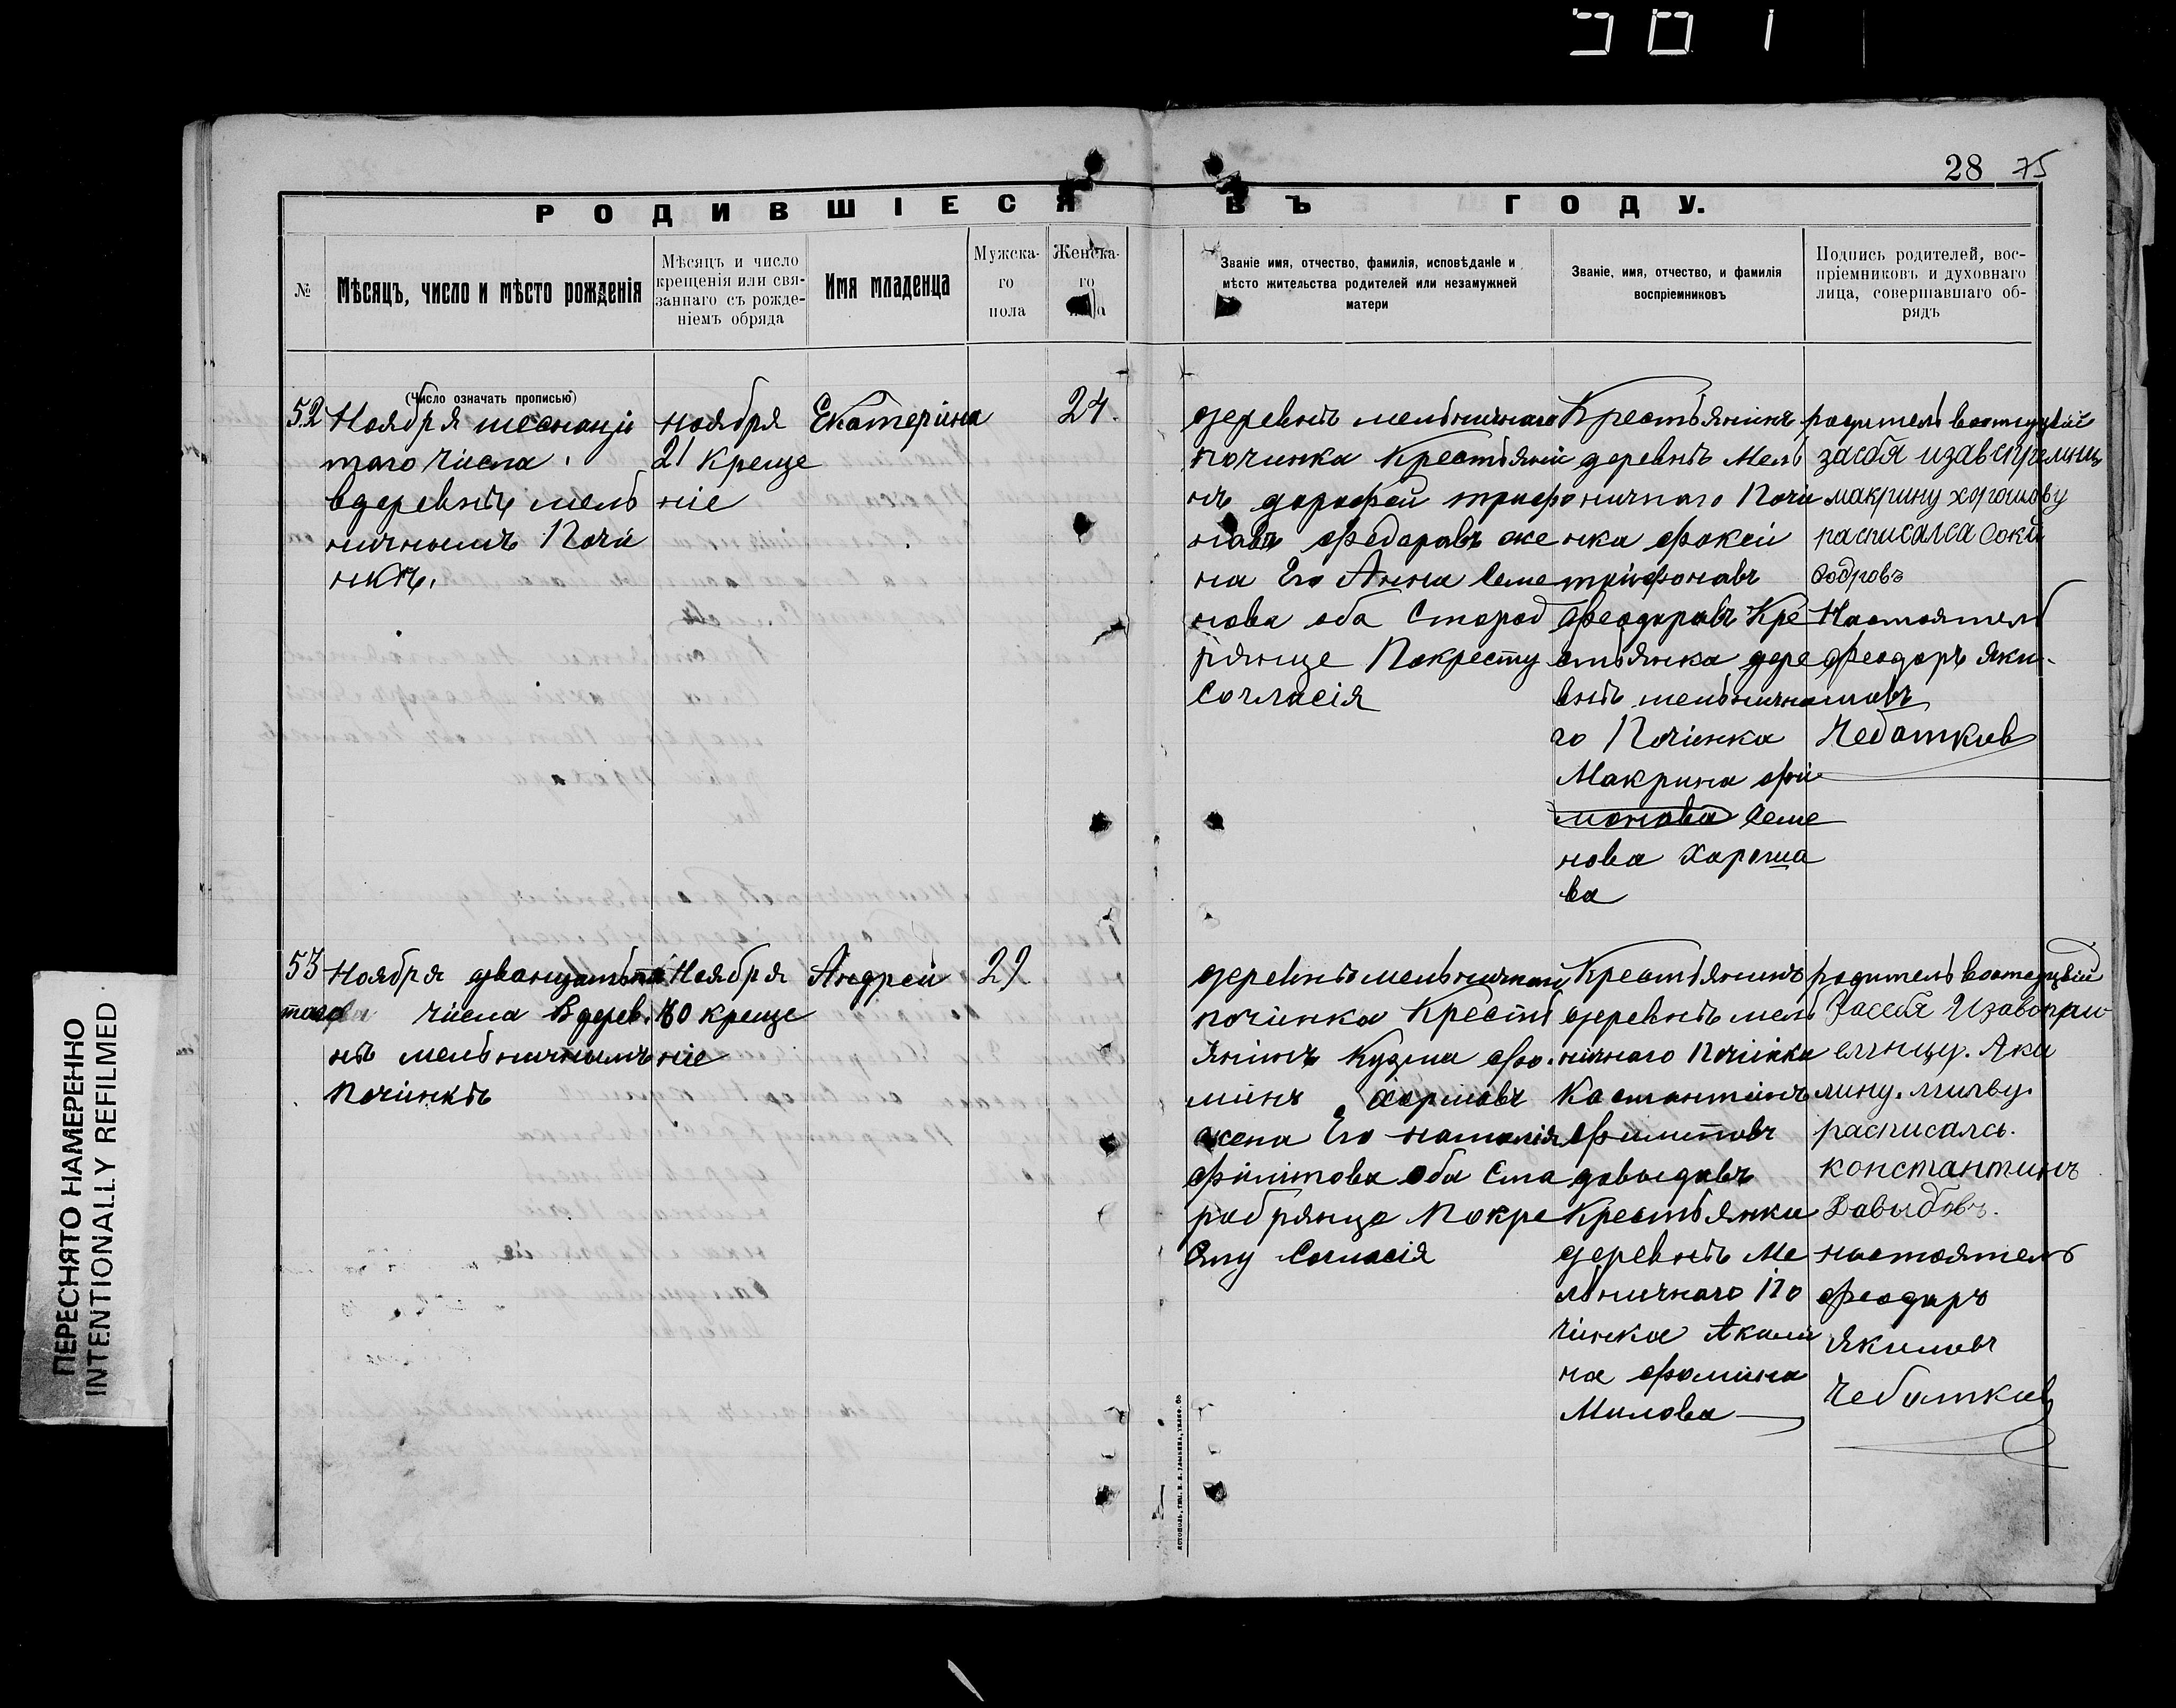 28 75
РОДИВШІЕСЯ ВЪ ГОДУ.
№
Мѣсяцъ, число и мѣсто рожденія
Мѣсяцъ и число
крещенія или свя-
заннаго съ рожде-
ніемъ обряда
Имя младенца
Мужска-
го
пола
Женска-
го
Званіе имя, отчество, фамилія, исповѣданіе и
мѣсто жительства родителей или незамужней
матери
Званіе, имя, отчество, и фамилія
воспріемниковъ
Подпись родителей, вос-
пріемниковъ и духовнаго
лица, совершавшаго об-
рядъ
(Число означать прописью)
52
Ноября
таго числа.
вдеревнѣ мель
ничномъ Почи
нкѣ.
ноября
21 Креще
ніе
Екатеріна
24.
деревнѣ мельничнаго
починка Крестьяни
нъ дорофей трифо
навъ федоравъ же
на Его Анна Семе
нова оба Старод
рянце Покресту
Согласія
Крестьянинъ
деревнѣ Мель
ничнаго Почи
нка фокей
тріфонавъ
Феодоравъ Кре
стьянка дере
внѣ мельнична
го Починка
Макрина фи
монова Семе
нова Хароша
ва
родитель
засбя
макрину хорошову
расписалса
Настоятель
Феодоръ Яки-
мавъ
Чебатков
53
Ноября
таго числа Вдерев.
нѣ мельничнымъ
Починкѣ
Ноября
30 креще
ніе
Андрей
29
деревнѣ мельничнаго
починка Кресть
янинъ Кузма фо.
минъ
жена Его наталія
філіпова оба Ста
робрянце Покре
сту Согласія
Крестьянинъ
деревнѣ мель
ничнаго Починка
Костантинъ
Филиповъ
давыдавъ
Крестьянка
деревнѣ Ме
льничнаго По
чинка Акили
на фомина
Милова
родитель
Засебя
емницу. Аки
лину. милву
расписалсь.
константинъ
Давыдовъ.
настоятель
Феодоръ
Якимовъ
Чебатков
ПЕРЕСНЯТО НАМЕРЕННО
INTENTIONALLY REFILMED